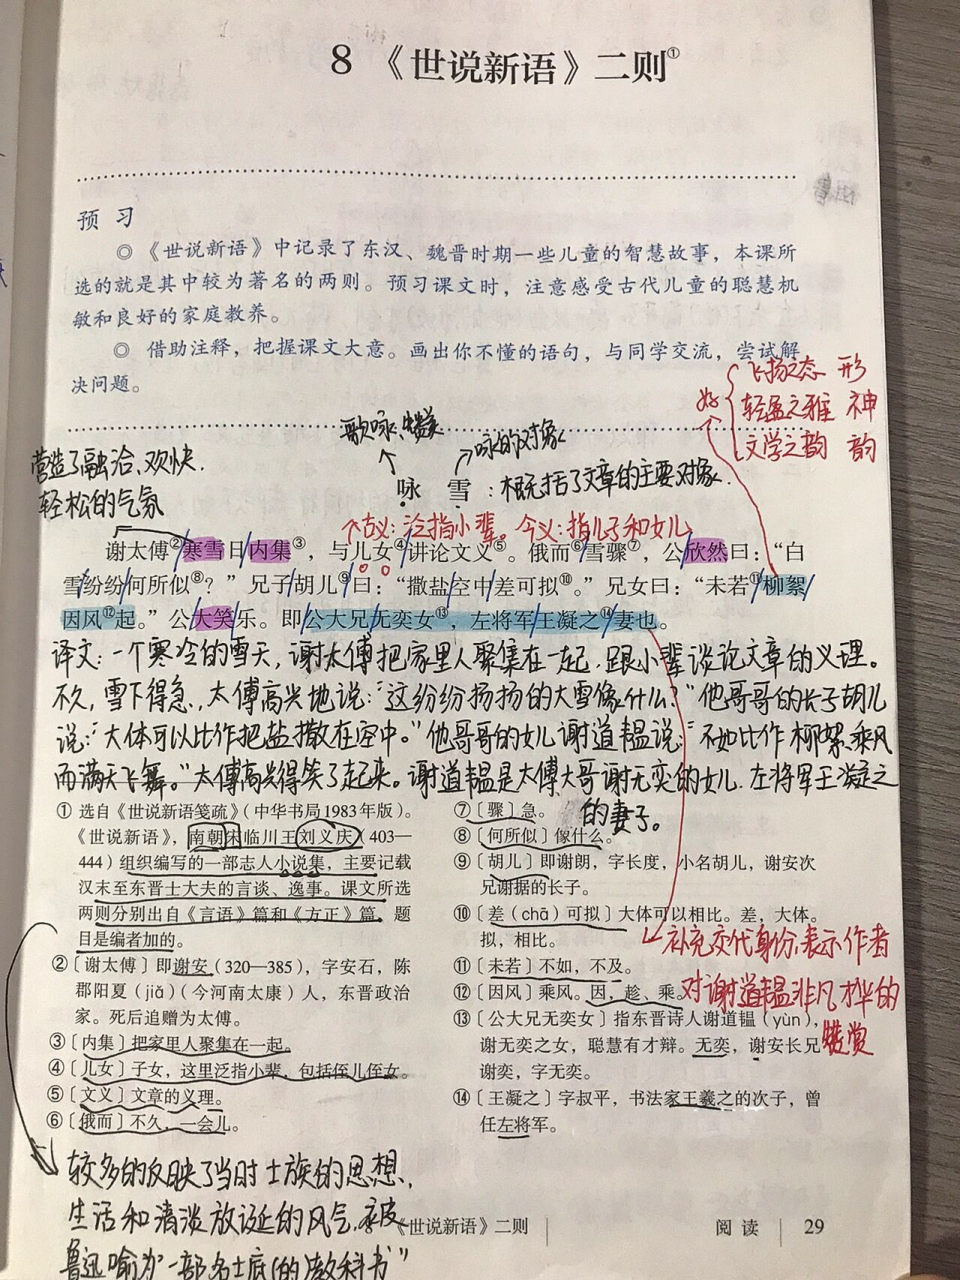 8 《世说新语》二则①
预 习
◎ 《世说新语》中记录了东汉、魏晋时期一些儿童的智慧故事，本课所
选的就是其中较为著名的两则。预习课文时，注意感受古代儿童的聪慧机
敏和良好的家庭教养。
◎ 借助注释，把握课文大意。画出你不懂的语句，与同学交流，尝试解
决问题。
飞扬之态 形
好 轻盈之雅 神
文学之韵 韵
歌咏、赞美
咏的对象
营造了融洽、欢快、
轻松的气氛
咏 雪：概括了文章的主要对象.
古义：泛指小辈。今义：指儿子和女儿
谢太傅②/寒雪日/内集③，与/儿女④/讲论文义⑤。俄而⑥/雪骤⑦，公/欣然曰：“白
雪/纷纷/何所似⑧？”兄子/胡儿⑨/曰：“撒盐/空中/差可拟⑩。”兄女曰：“未若⑪/柳絮/
因风⑫起。”公/大笑/乐。即/公大兄/无奕女⑬，左将军/王凝之⑭/妻也。
译文：一个寒冷的雪天，谢太傅把家里人聚集在一起，跟小辈谈论文章的义理。
不久，雪下得急，太傅高兴地说：“这纷纷扬扬的大雪像什么？”他哥哥的长子胡儿
说：“大体可以比作把盐撒在空中。”他哥哥的女儿谢道韫说：“不如比作柳絮乘风
而满天飞舞。”太傅高兴得笑了起来。谢道韫是太傅大哥谢无奕的女儿，左将军王凝之
的妻子。
① 选自《世说新语笺疏》（中华书局1983年版）。
《世说新语》，南朝宋临川王刘义庆（403—
444）组织编写的一部志人小说集，主要记载
汉末至东晋士大夫的言谈、逸事。课文所选
两则分别出自《言语》篇和《方正》篇。题
目是编者加的。
②〔谢太傅〕即谢安（320—385），字安石，陈
郡阳夏（jiǎ）（今河南太康）人，东晋政治
家。死后追赠为太傅。
③〔内集〕把家里人聚集在一起。
④〔儿女〕子女，这里泛指小辈，包括侄儿侄女。
⑤〔文义〕文章的义理。
⑥〔俄而〕不久，一会儿。
⑦〔骤〕急。
⑧〔何所似〕像什么。
⑨〔胡儿〕即谢朗，字长度，小名胡儿，谢安次
兄谢据的长子。
⑩〔差（chā）可拟〕大体可以相比。差，大体。
拟，相比。
⑪〔未若〕不如，不及。
⑫〔因风〕乘风。因，趁、乘。
⑬〔公大兄无奕女〕指东晋诗人谢道韫（yùn），
谢无奕之女，聪慧有才辩。无奕，谢安长兄
谢奕，字无奕。
⑭〔王凝之〕字叔平，书法家王羲之的次子，曾
任左将军。
补充交代身份，表示作者
对谢道韫非凡才华的
赞赏
较多的反映了当时士族的思想、
生活和清淡放诞的风气，被
鲁迅喻为“一部名士底(的)教科书”
8 《世说新语》二则
阅 读 29